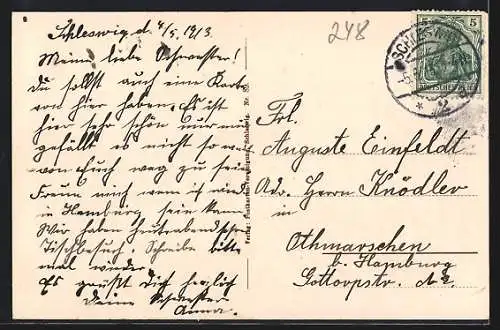 Schleswig d. 4/5. 1913.
Meine liebe Schwester!
du sollst auch eine Karte
von hier haben. Es ist
hier sehr schön nur mir
gefällt es nicht so
von Euch weg zu sein
Freue mich wenn ich wieder
in Hamburg sein kann
Wir haben heute
Tischbesuch. Schreibe bitte
mal wieder
Es grüßt dich herzlich
deine Schwester
Anna.
248
SCHLESWIG
5 5
Frl.
Auguste Einfeldt
Adr. Herrn Knödler
in
Othmarschen
b. Hamburg
Gottorpstr.